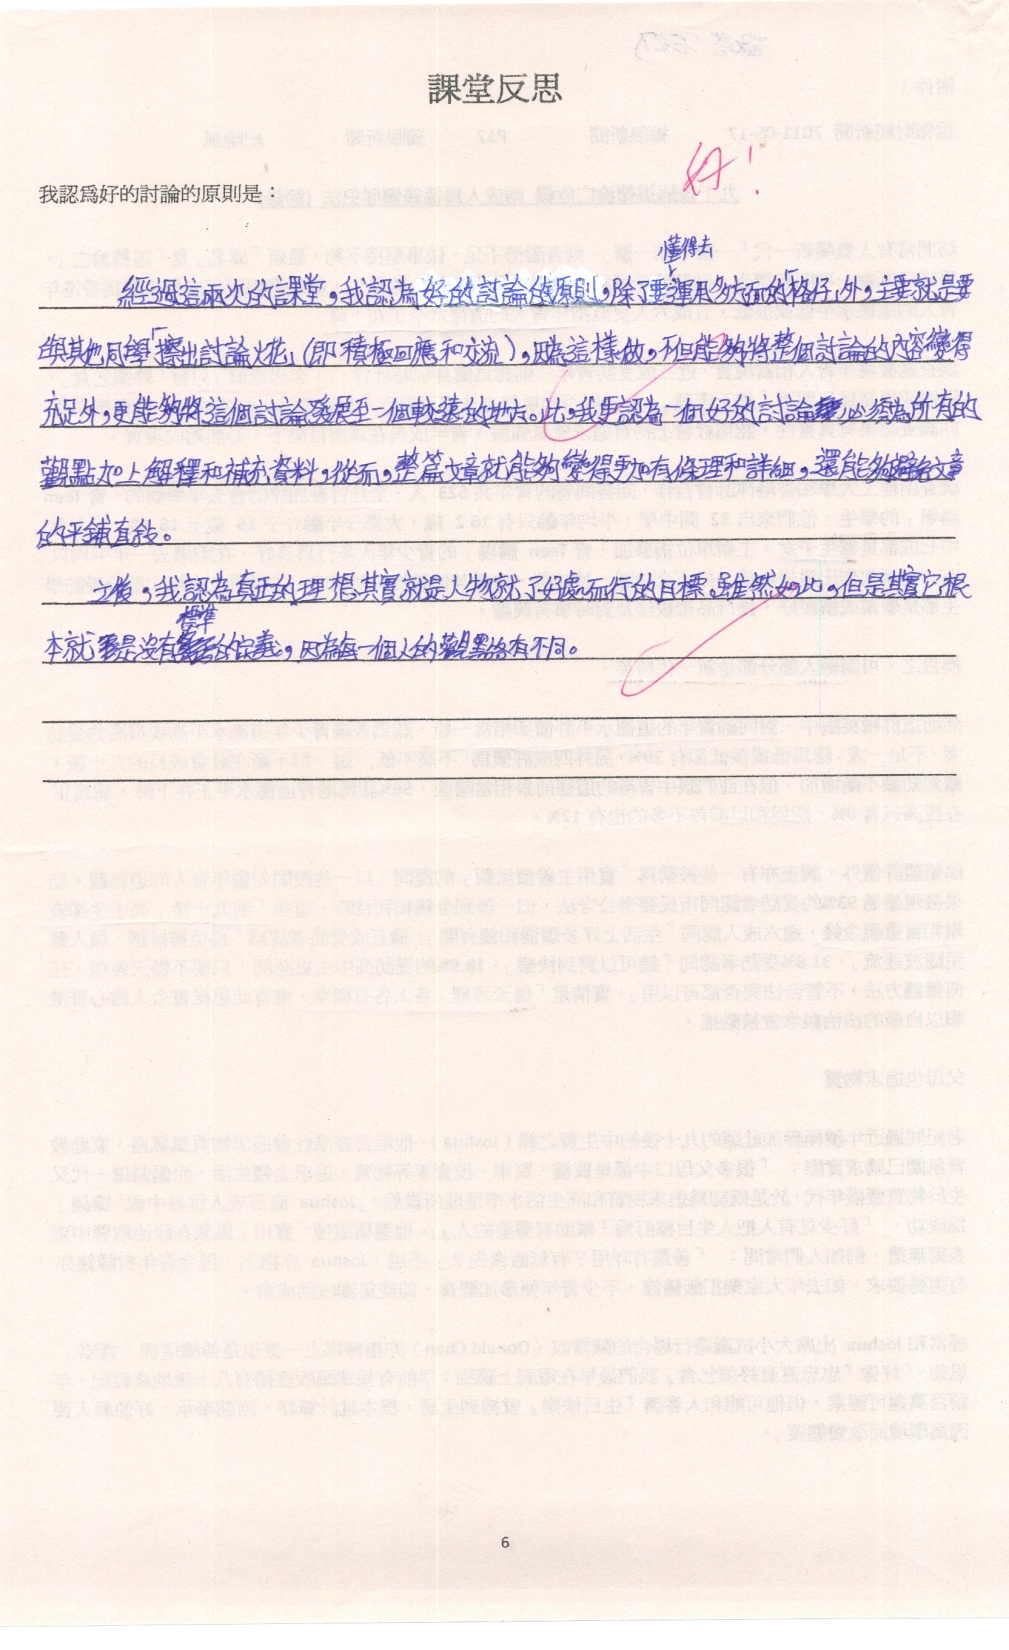 課堂反思
好！
我認爲好的討論的原則是：
懂得去
經過這兩次的課堂，我認為好的討論的原則，除了要運用多方面的「格仔」外，主要就是要
與其他同學「擦出討論火花」（即積極回應和交流），因為這樣做，不但能夠將整個討論的內容變得
充足外，更能夠將這個討論發展至一個較遠的地方。此，我更認為一個好的討論必須為所有的
觀點加上解釋和補充資料，從而，整篇文章就能夠變得更加有條理和詳細，還能夠避免文章
的平鋪直敍。
之後，我認為真正的理想其實就是人物就了好處而行的目標。雖然如此，但是其實它根
標準
本就是沒有的定義，因為每一個人的觀點各有不同。
6